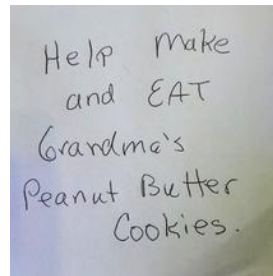 Help Make
and EAT
Grandma's
Peanut Butter
Cookies.